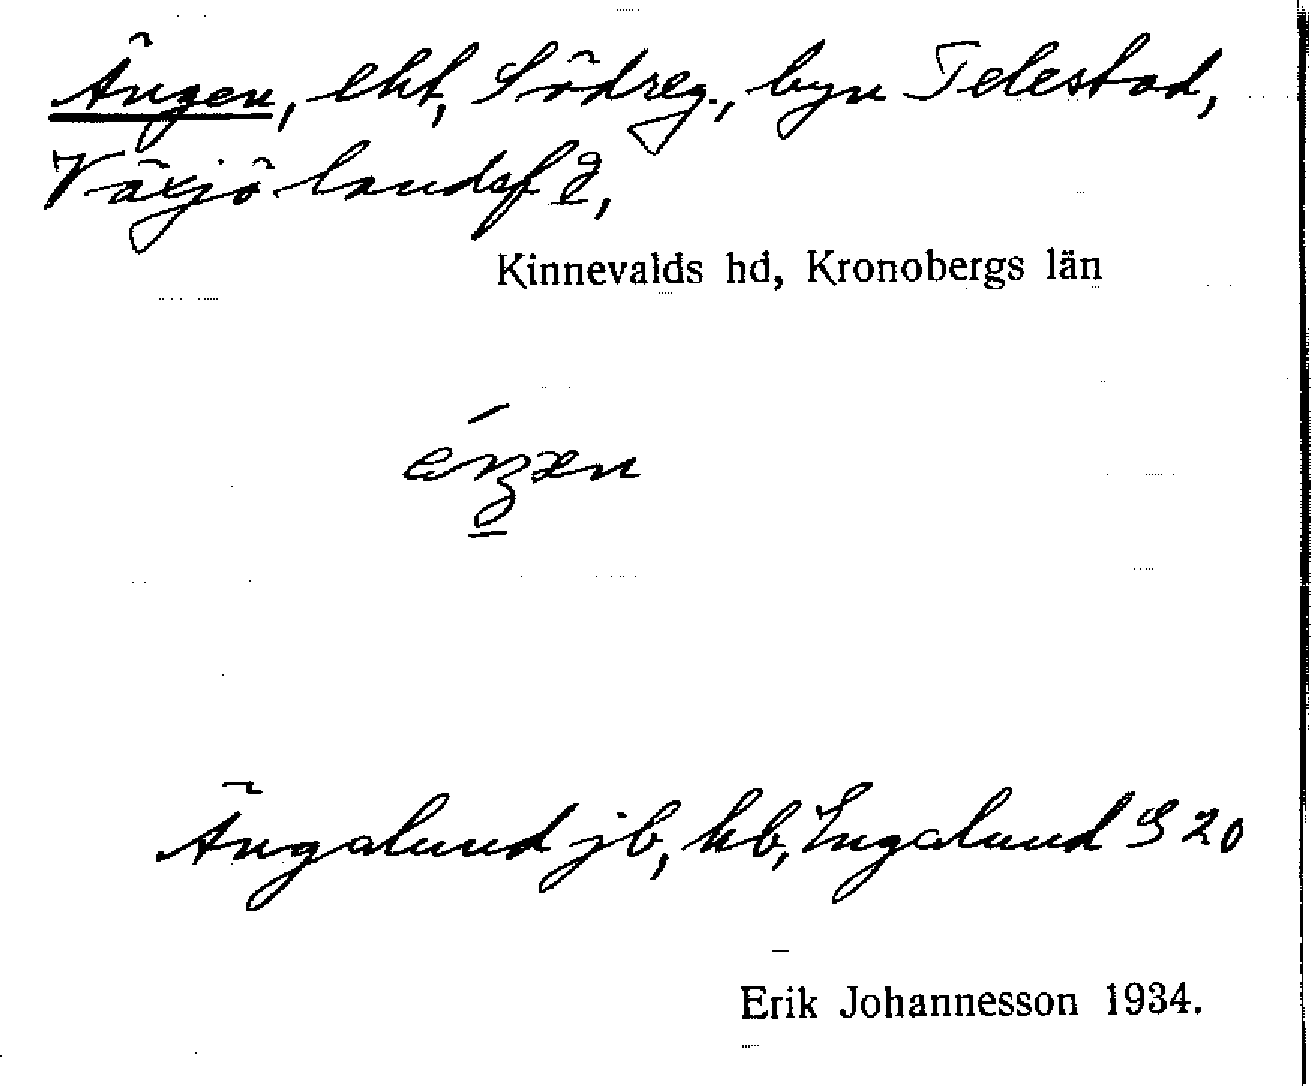 Ängen, eht, Södreg., byn Telestad,
Växjö landsf d,
Kinnevalds hd, Kronobergs län
Ängalund jb, hb, Engalund S 20
Erik Johannesson 1934.